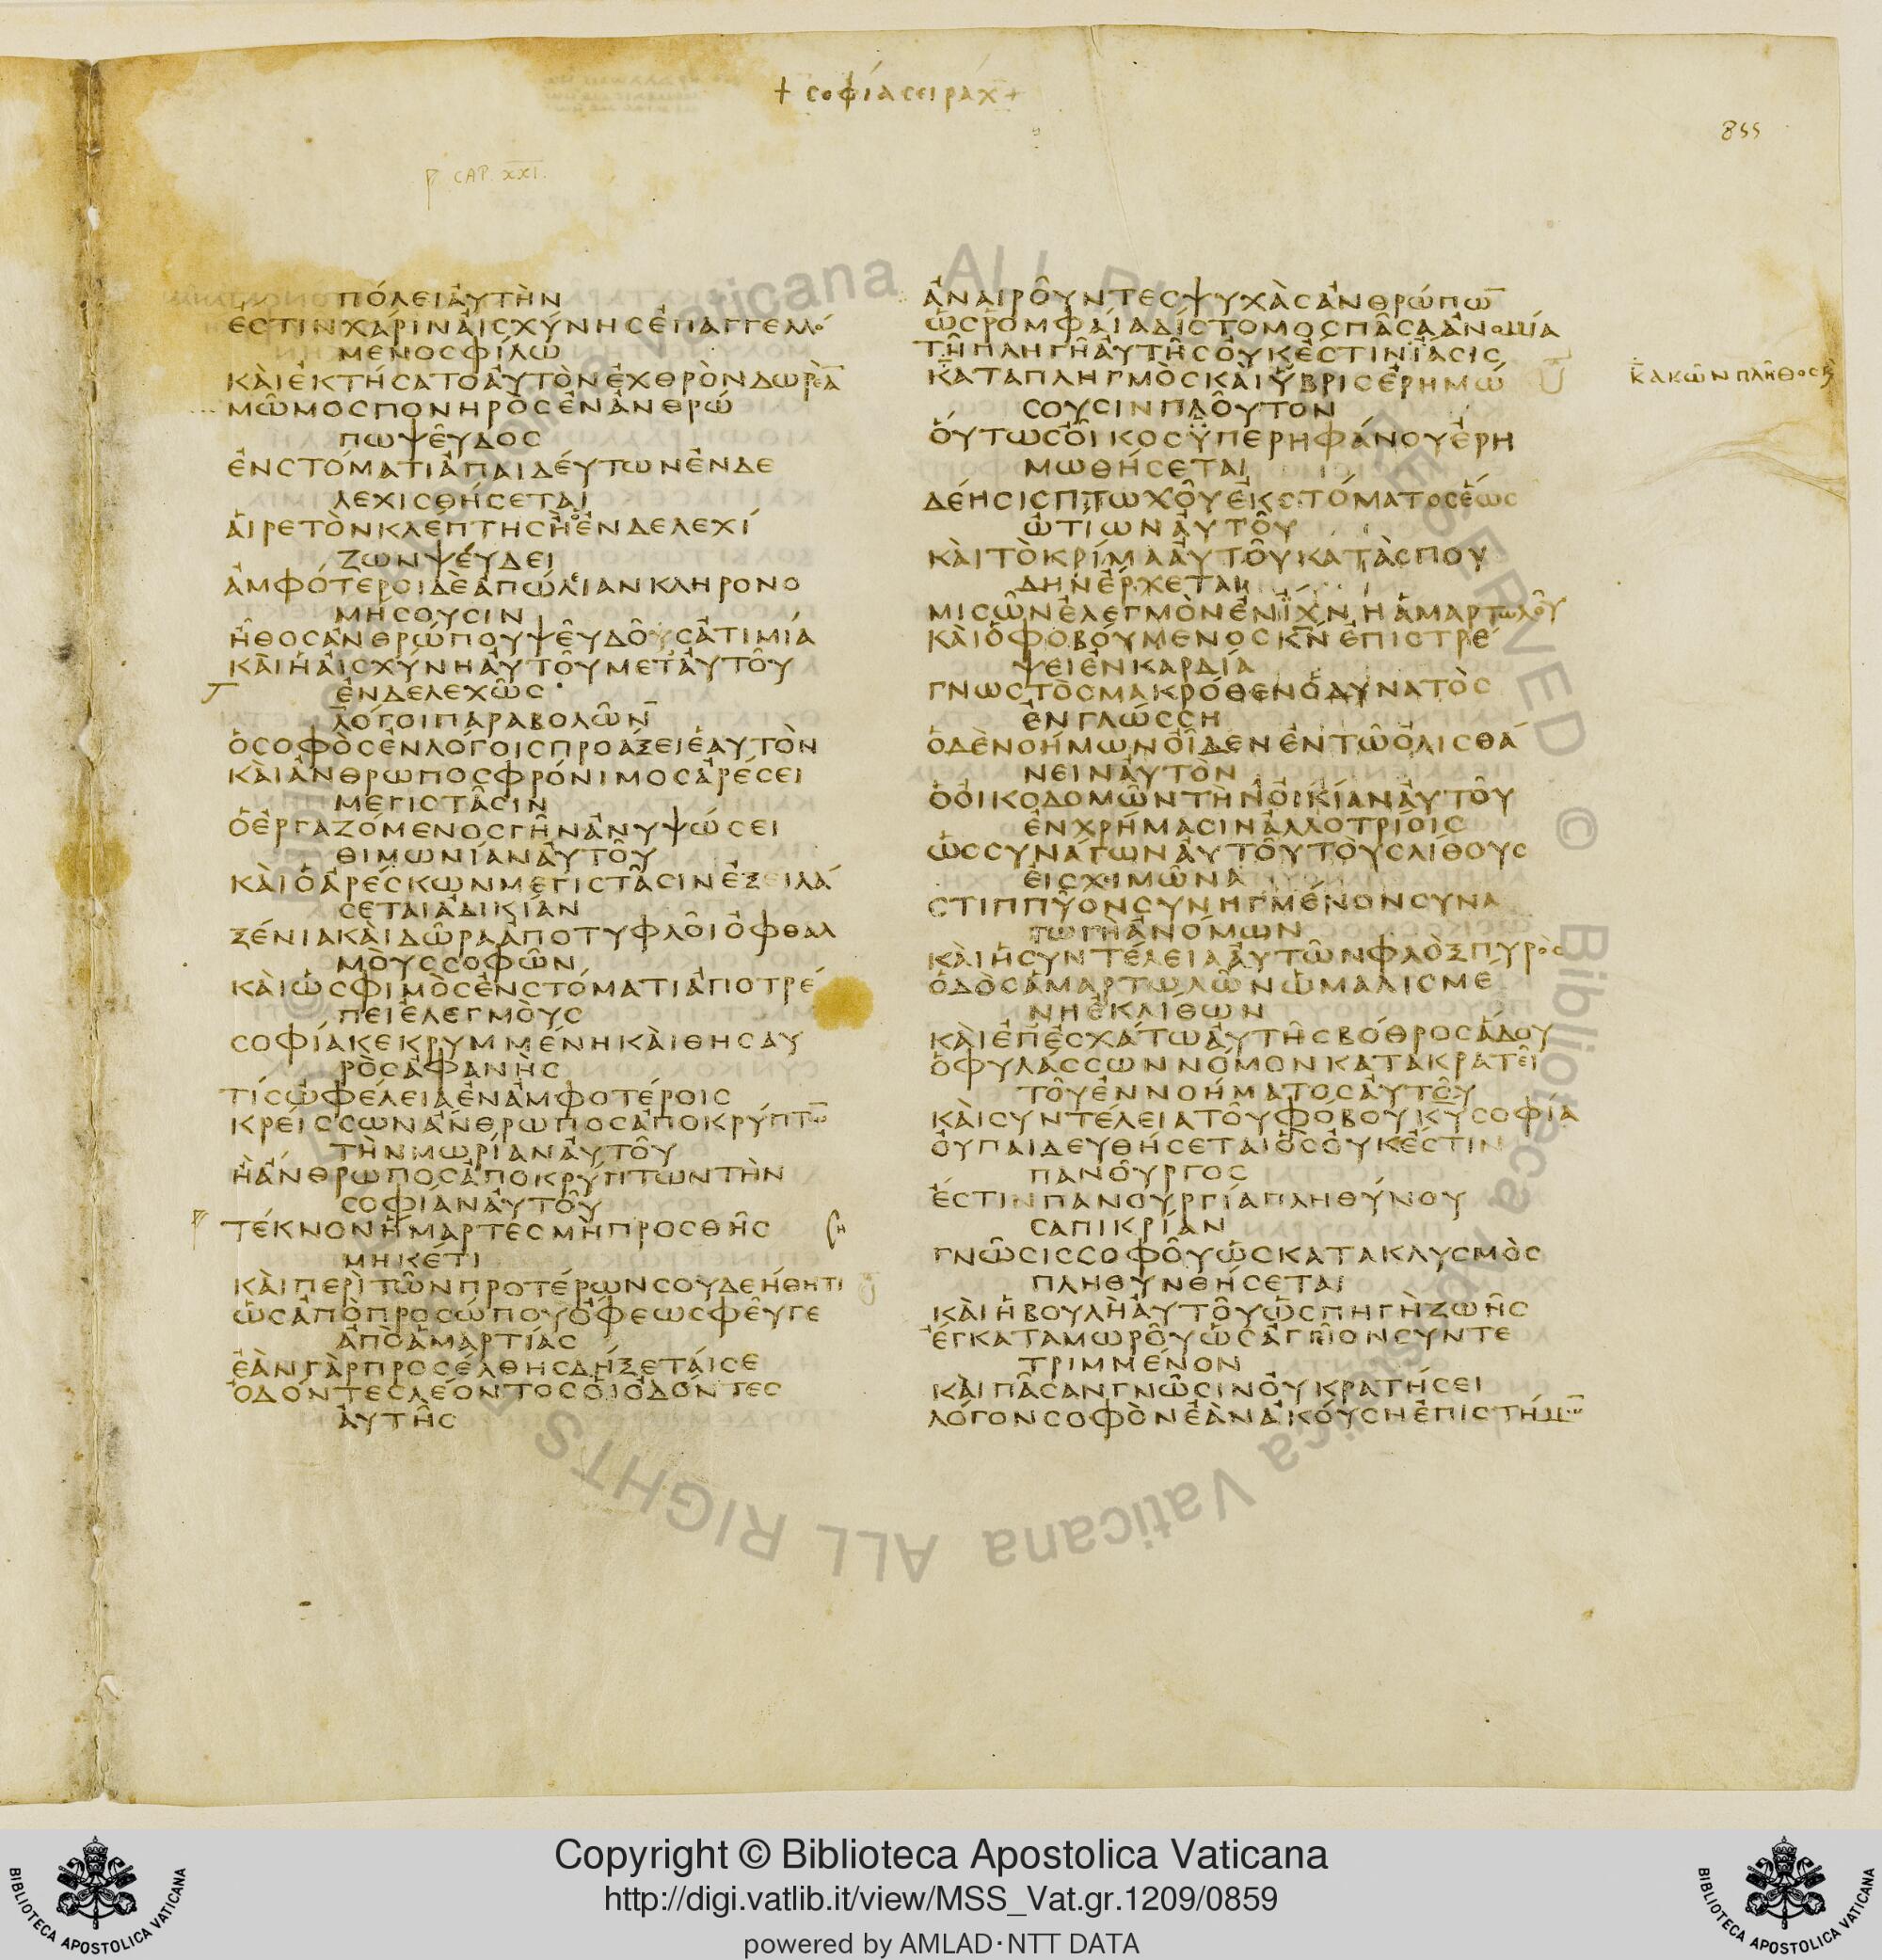 + σοφία σειράχ +
855
CAP. XXI.
πόλει ἀυτὴν
ἔστιν χάριν ἀισχύνης ἐπαγγελλό
μενος φίλω
κὰι ἐκτήσατο ἀυτὸν ἐχθρὸν δωρεὰ̅
μῶμος πονηρὸς ἐν ἀνθρώ
πω ψεῦδος
ἐν στόματι ἀπαιδέυτων ἐνδε
λεχισθήσεται
ἁιρετὸν κλέπτης ἢ ὁ ἐνδελεχί
ζων ψέυδει
ἀμφότεροι δὲ ἀπώλειαν κληρονο
μήσουσιν
ἦθος ἀνθρώπου ψευδοῦς ἀτιμία
κὰι ἡ ἀισχύνη ἀυτοῦ μετ' ἀυτοῦ
ἐνδελεχῶς
λόγοι παραβολῶν
ὁ σοφὸς ἐν λόγοις προάξει ἑαυτὸν
κὰι ἄνθρωπος φρόνιμος ἀρέσει
μεγιστᾶσιν
ὁ ἐργαζόμενος γῆν ἀνυψώσει
θιμωνίαν ἀυτοῦ
κὰι ὁ ἀρέσκων μεγιστᾶσιν ἐξειλά
σεται ἀδικίαν
ξένια κὰι δῶρα ἀποτυφλοῖ ὀφθαλ
μοὺς σοφῶν
κὰι ὡς φιμὸς ἐν στόματι ἀποτρέ
πει ἐλεγμοὺς
σοφία κεκρυμμένη κὰι θησαυ
ρὸς ἀφανὴς
τίς ὠφέλεια ἐν ἀμφοτέροις
κρείσσων ἄνθρωπος ἀποκρύπτω̅
τὴν μωρίαν ἀυτοῦ
ἢ ἄνθρωπος ἀποκρύπτων τὴν
σοφίαν ἀυτοῦ
τέκνον ἥμαρτες μὴ προσθῆς
μηκέτι
κὰι περὶ τῶν προτέρων σου δεήθητι
ὡς ἀπὸ προσώπου ὄφεως φεῦγε
ἀπὸ ἁμαρτίας
ἐὰν γὰρ προσέλθης δήξεταί σε
ὀδόντες λέοντος ὁι ὀδόντες
ἀυτῆς
ἀναιροῦντες ψυχὰς ἀνθρώπω̅
ὡς ῥομφαία δίστομος πᾶσα ἀνομία
τῆ πληγῆ ἀυτῆς ὀυκ ἔστιν ἴασις
καταπληγμὸς κὰι ὕβρις ἐρημώ
σουσιν πλοῦτον
ὅυτως ὀῖκος ὑπερηφάνου ἐρη
μωθήσεται
δέησις πτωχοῦ ἐκ στόματος ἕως
ὠτίων ἀυτοῦ
κὰι τὸ κρίμα ἀυτοῦ κατὰ σπου
δὴν ἔρχεται
μισῶν ἐλεγμὸν ἐν ἴχνη ἁμαρτωλοῦ
κὰι ὁ φοβόυμενος κ̅ν̅ ἐπιστρέ
ψει ἐν καρδία
γνωστὸς μακρόθεν ὁ δυνατὸς
ἐν γλώσση
ὁ δὲ νοήμων ὀῖδεν ἐν τῶ ὀλισθά
νειν ἀυτὸν
ὁ ὀικοδομῶν τὴν ὀικίαν ἀυτοῦ
ἐν χρήμασιν ἀλλοτρίοις
ὡς συνάγων ἀυτοῦ τοὺς λίθους
ἐις χιμῶνα
στιππύον συνηγμένον συνα
γωγὴ ἀνόμων
κὰι ἡ συντέλεια ἀυτῶν φλὸξ πυρὸς
ὁδὸς ἁμαρτωλῶν ὡμαλισμέ
νη ἐκ λίθων
κὰι ἐπ' ἐσχάτω ἀυτῆς βόθρος ἅδου
ὁ φυλάσσων νόμον κατακρατεῖ
τοῦ ἐννοήματος ἀυτοῦ
κὰι συντέλεια τοῦ φόβου κ̅υ̅ σοφία
ὀυ παιδευθήσεται ὃς ὀυκ ἔστιν
πανοῦργος
ἔστιν πανουργία πληθύνου
σα πικρίαν
γνῶσις σοφοῦ ὡς κατακλυσμὸς
πληθυνθήσεται
κὰι ἡ βουλὴ ἀυτοῦ ὡς πηγὴ ζωῆς
ἔγκατα μωροῦ ὡς ἀγγῖον συντε
τριμμένον
κὰι πᾶσαν γνῶσιν ὀυ κρατήσει
λόγον σοφὸν ἐὰν ἀκόυση ἐπιστήμω̅
Copyright © Biblioteca Apostolica Vaticana
http://digi.vatlib.it/view/MSS_Vat.gr.1209/0859
powered by AMLAD·NTT DATA
BIBLIOTECA APOSTOLICA VATICANA
BIBLIOTECA APOSTOLICA VATICANA